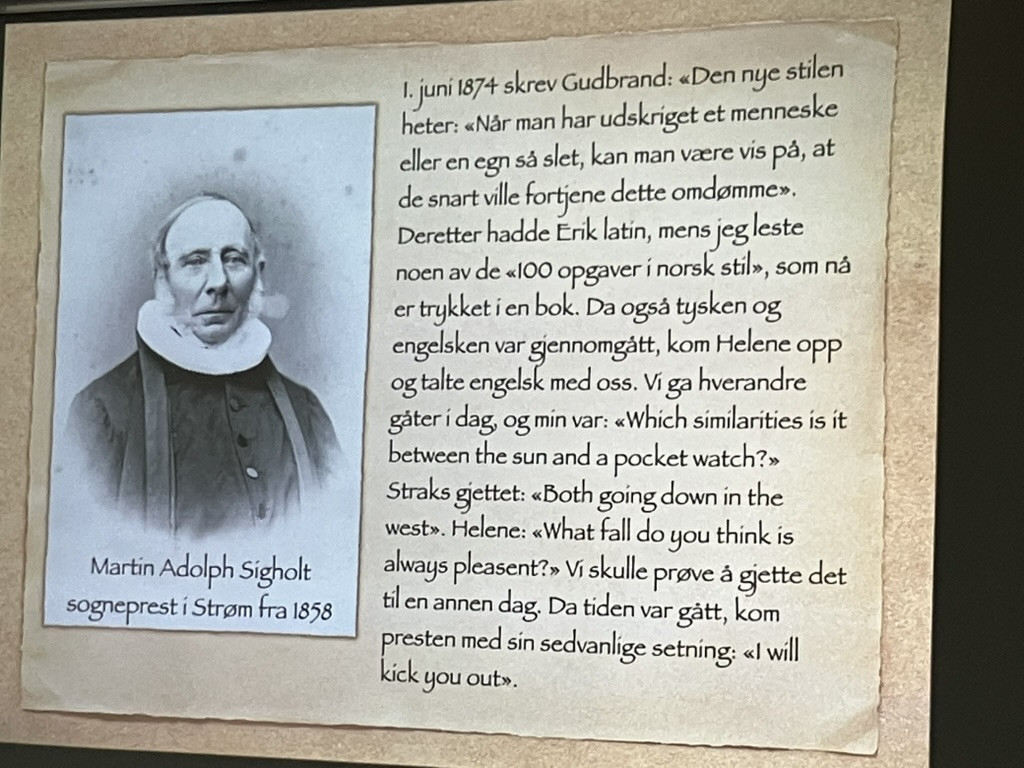 1. juni 1874 skrev Gudbrand: «Den nye stilen
heter: «Når man har udskriget et menneske
eller en egn så slet, kan man være vis på, at
de snart ville fortjene dette omdømme».
Deretter hadde Erik latin, mens jeg leste
noen av de «100 opgaver i norsk stil», som nå
er trykket i en bok. Da også tysken og
engelsken var gjennomgått, kom Helene opp
og talte engelsk med oss. Vi ga hverandre
gåter i dag, og min var: «Which similarities is it
between the sun and a pocket watch?»
Straks gjettet: «Both going down in the
west». Helene: «What fall do you think is
always pleasent?» Vi skulle prøve å gjette det
til en annen dag. Da tiden var gått, kom
presten med sin sedvanlige setning: «I will
kick you out».
Martin Adolph Sigholt
sogneprest i Strøm fra 1858